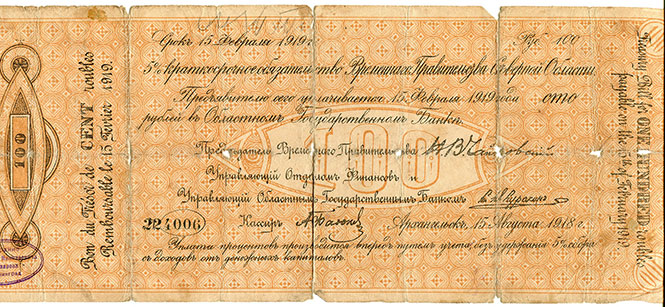 Срокъ 15 Февраля 1919 г.
Руб. 100
5% краткосрочное обязательство Временнаго Правительства Сѣверной Области.
Предъявителю сего уплачивается 15 Февраля 1919 года сто
рублей въ Областномъ Государственномъ Банкѣ.
Предсѣдатель Временнаго Правительства
Управляющій Отдѣломъ Финансовъ и
Управляющій Областнымъ Государственнымъ Банкомъ
224006
Кассиръ
Архангельскъ, 15 Августа 1918 г.
Уплата процентовъ производится впередъ путемъ учета, безъ удержанія 5% сбора
съ доходовъ отъ денежныхъ капиталовъ.
100
100
Bon du Trésor de CENT roubles
Remboursable le 15 Février 1919.
Treasury Bill for ONE HUNDRED roubles
payable on the 15 of February 1919